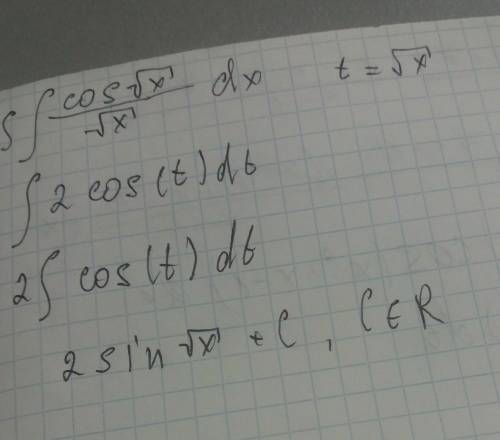 5 ∫ cos√x / √x dx t = √x
∫ 2 cos(t) dt
2 ∫ cos(t) dt
2 sin √x + C, C ∈ R